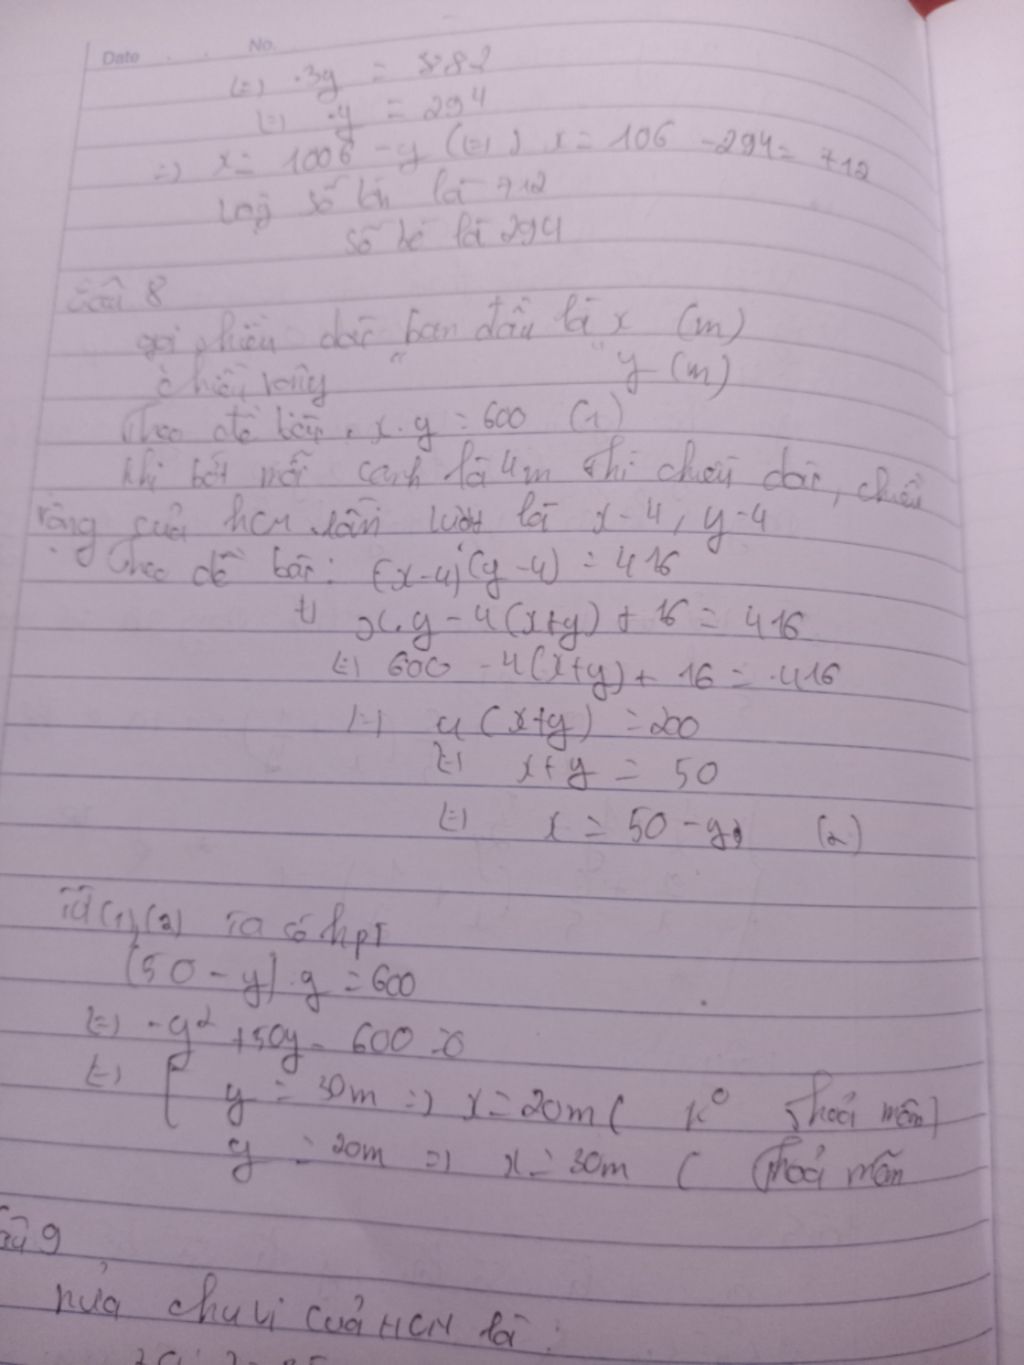 Date No.
(=) 3y = 882
(=) y = 294
=) x = 1006 - y (=) x = 106 - 294 = 712
số lớn là 712
số bé là 294
Câu 8
gọi chiều dài ban đầu là x (m)
chiều rộng " " y (m)
Theo đề bài, x.y = 600 (1)
khi bớt mỗi cạnh là 4m thì chiều dài, chiều
rộng của hcn lần lượt là x-4, y-4
Theo đề bài: (x-4)(y-4) = 416
x.y - 4(x+y) + 16 = 416
(=) 600 - 4(x+y) + 16 = 416
(=) 4(x+y) = 200
(=) x+y = 50
(=) x = 50 - y (2)
Từ (1),(2) ta có hpt
(50 - y).y = 600
(=) -y² + 50y - 600 = 0
(=) [ y = 30m =) x = 20m ( k° thoả mãn)
y = 20m =) x = 30m ( thoả mãn
Câu 9
nửa chu vi của HCN là: